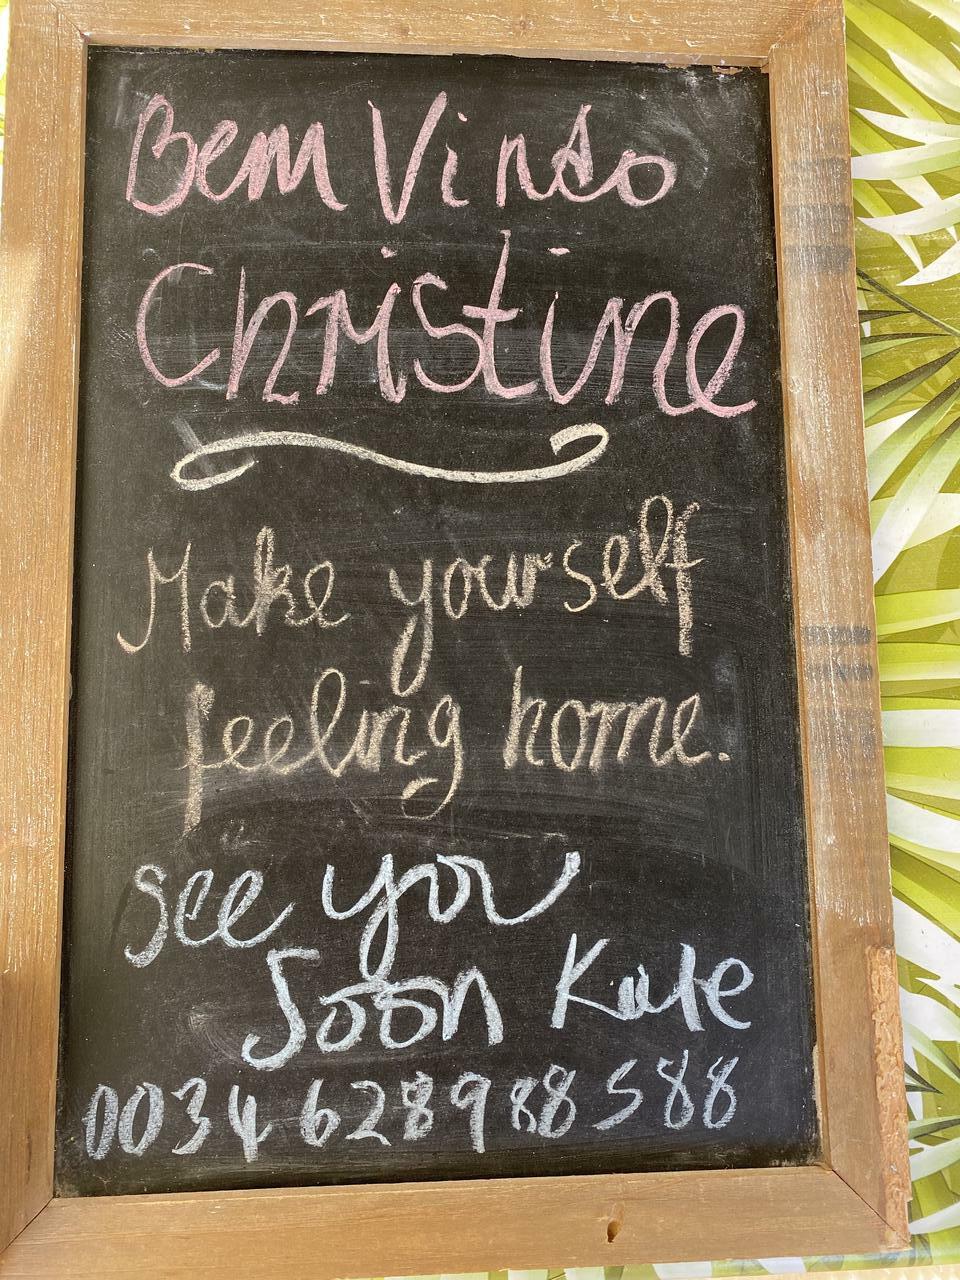 Bem Vindo
Christine
Make yourself
feeling home.
See you
Soon Kate
0034 628988588